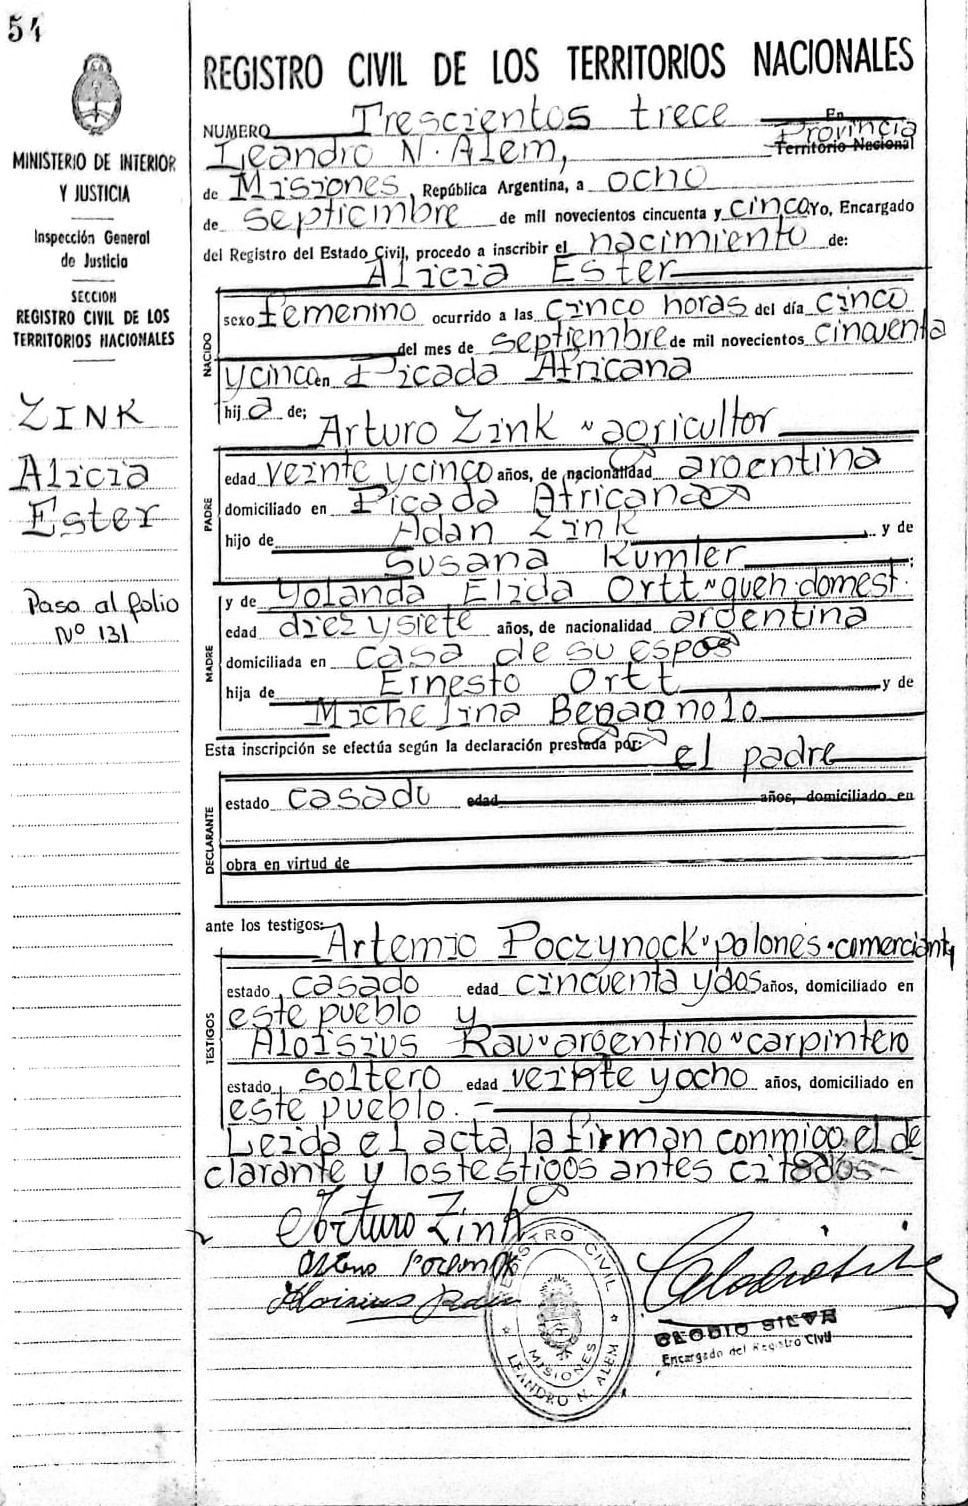 54
MINISTERIO DE INTERIOR
Y JUSTICIA
Inspección General
de Justicia
SECCION
REGISTRO CIVIL DE LOS
TERRITORIOS NACIONALES
ZINK
Alicia
Ester
Paso al folio
Nº 131
REGISTRO CIVIL DE LOS TERRITORIOS NACIONALES
NUMERO Trescientos trece En
Leandro N. Alem, Provincia
Territorio Nacional
de Misiones, República Argentina, a ocho
de septiembre de mil novecientos cincuenta y cinco Yo, Encargado
del Registro del Estado Civil, procedo a inscribir el nacimiento de:
Alicia Ester
NACIDO
sexo femenino ocurrido a las cinco horas del día cinco
del mes de septiembre de mil novecientos cincuenta
y cinco en Picada Africana
hija de;
Arturo Zink ~ agricultor
PADRE
edad veinte y cinco años, de nacionalidad argentina
domiciliado en Picada Africana
hijo de Adan Zink y de
Susana Kumler ;
MADRE
y de Yolanda Elida Ortt ~ queh. domest.
edad diez y siete años, de nacionalidad argentina
domiciliada en casa de su esposo
hija de Ernesto Ortt y de
Michelina Begagnolo
Esta inscripción se efectúa según la declaración prestada por: el padre
DECLARANTE
estado casado edad años, domiciliado en
obra en virtud de
ante los testigos:
Artemio Poczynock ~ polones ~ comerciante
TESTIGOS
estado casado edad cincuenta y dos años, domiciliado en
este pueblo y
Aloisius Rau ~ argentino ~ carpintero
estado soltero edad veinte y ocho años, domiciliado en
este pueblo. -
Leida el acta, la firman conmigo el de
clarante y los testigos antes citados -
Arturo Zink
Aloisius Rau
REGISTRO CIVIL
MISIONES
LEANDRO N. ALEM
CLODIO SILVA
Encargado del Registro Civil